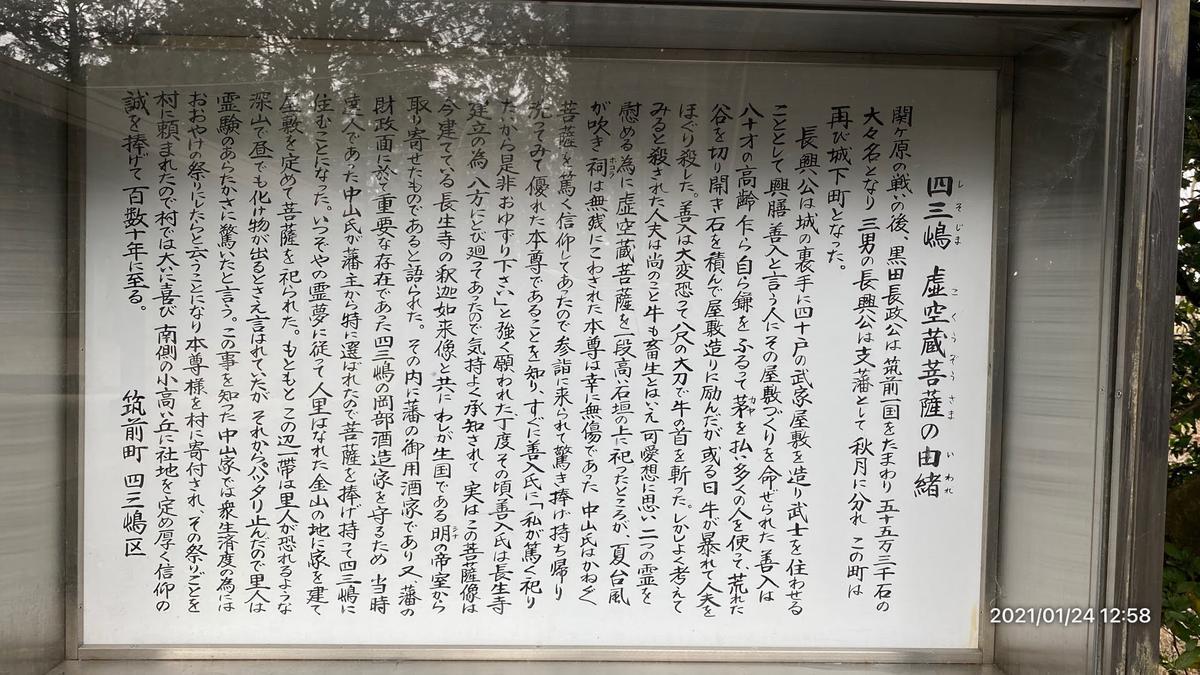 四三嶋 虚空蔵菩薩の由緒
しそじま こくうぞうさま いわれ
関ヶ原の戦いの後、黒田長政公は筑前一国をたまわり 五十五万三千石の
大々名となり 三男の長興公は支藩として 秋月に分れ この町は
再び城下町となった。
長興公は城の裏手に四十戸の武家屋敷を造り武士を住わせる
こととして 興膳 善入と言う人にその屋敷づくりを命ぜられた 善入は
八十才の高齢乍ら自ら鎌をふるって茅を払い多くの人を使って、荒れた
カヤ
谷を切り開き石を積んで屋敷造りに励んだが 或る日 牛が暴れて人夫を
ほぐり殺した。善入は大変恐って八尺の大刀で牛の首を斬った。しかしよく考えて
みると殺された人夫は尚のこと牛も畜生とはいえ可愛想に思い二つの霊を
慰める為に虚空蔵菩薩を一段高い石垣の上に祀ったところが、夏台風
が吹き 祠は無残にこわされた本尊は幸に無傷であった 中山氏はかねがね
ホコラ
菩薩を篤く信仰してあったので参詣に来られて驚き捧げ持ち帰り
洗ってみて優れた本尊であることを知り、すぐに善入氏に「私が篤く祀り
たいから是非おゆずり下さい」と強く願われた丁度その頃善入氏は長生寺
建立の為 八方にとび廻ってあったので気持よく承知されて 実はこの菩薩像は
今建てている長生寺の釈迦如来像と共に わしが生国である明の帝室から
シナ
取り寄せたものであると語られた。 その内に藩の御用酒家であり又 藩の
財政面に於て重要な存在であった四三嶋の岡部酒造家を守るため 当時
達人であった中山氏が藩主から特に選ばれたので菩薩を捧げ持って四三嶋に
住むことになった。いつぞやの霊夢に従って 人里はなれた金山の地に家を建て
屋敷を定めて菩薩を祀られた。もともと この辺一帯は里人が恐れるような
深山で昼でも化け物が出るとさえ言はれていたが それからパッタリ止んだので里人は
霊験のあらたかさに驚いたと言う。この事を知った中山家では衆生済度の為には
おおやけの祭りにしたらと云うことになり本尊様を村に寄付され、その祭りごとを
村に頼まれたので村では大いに喜び 南側の小高い丘に社地を定め厚く信仰の
誠を捧げて百数十年に至る。
筑前町 四三嶋区
2021/01/24 12:58